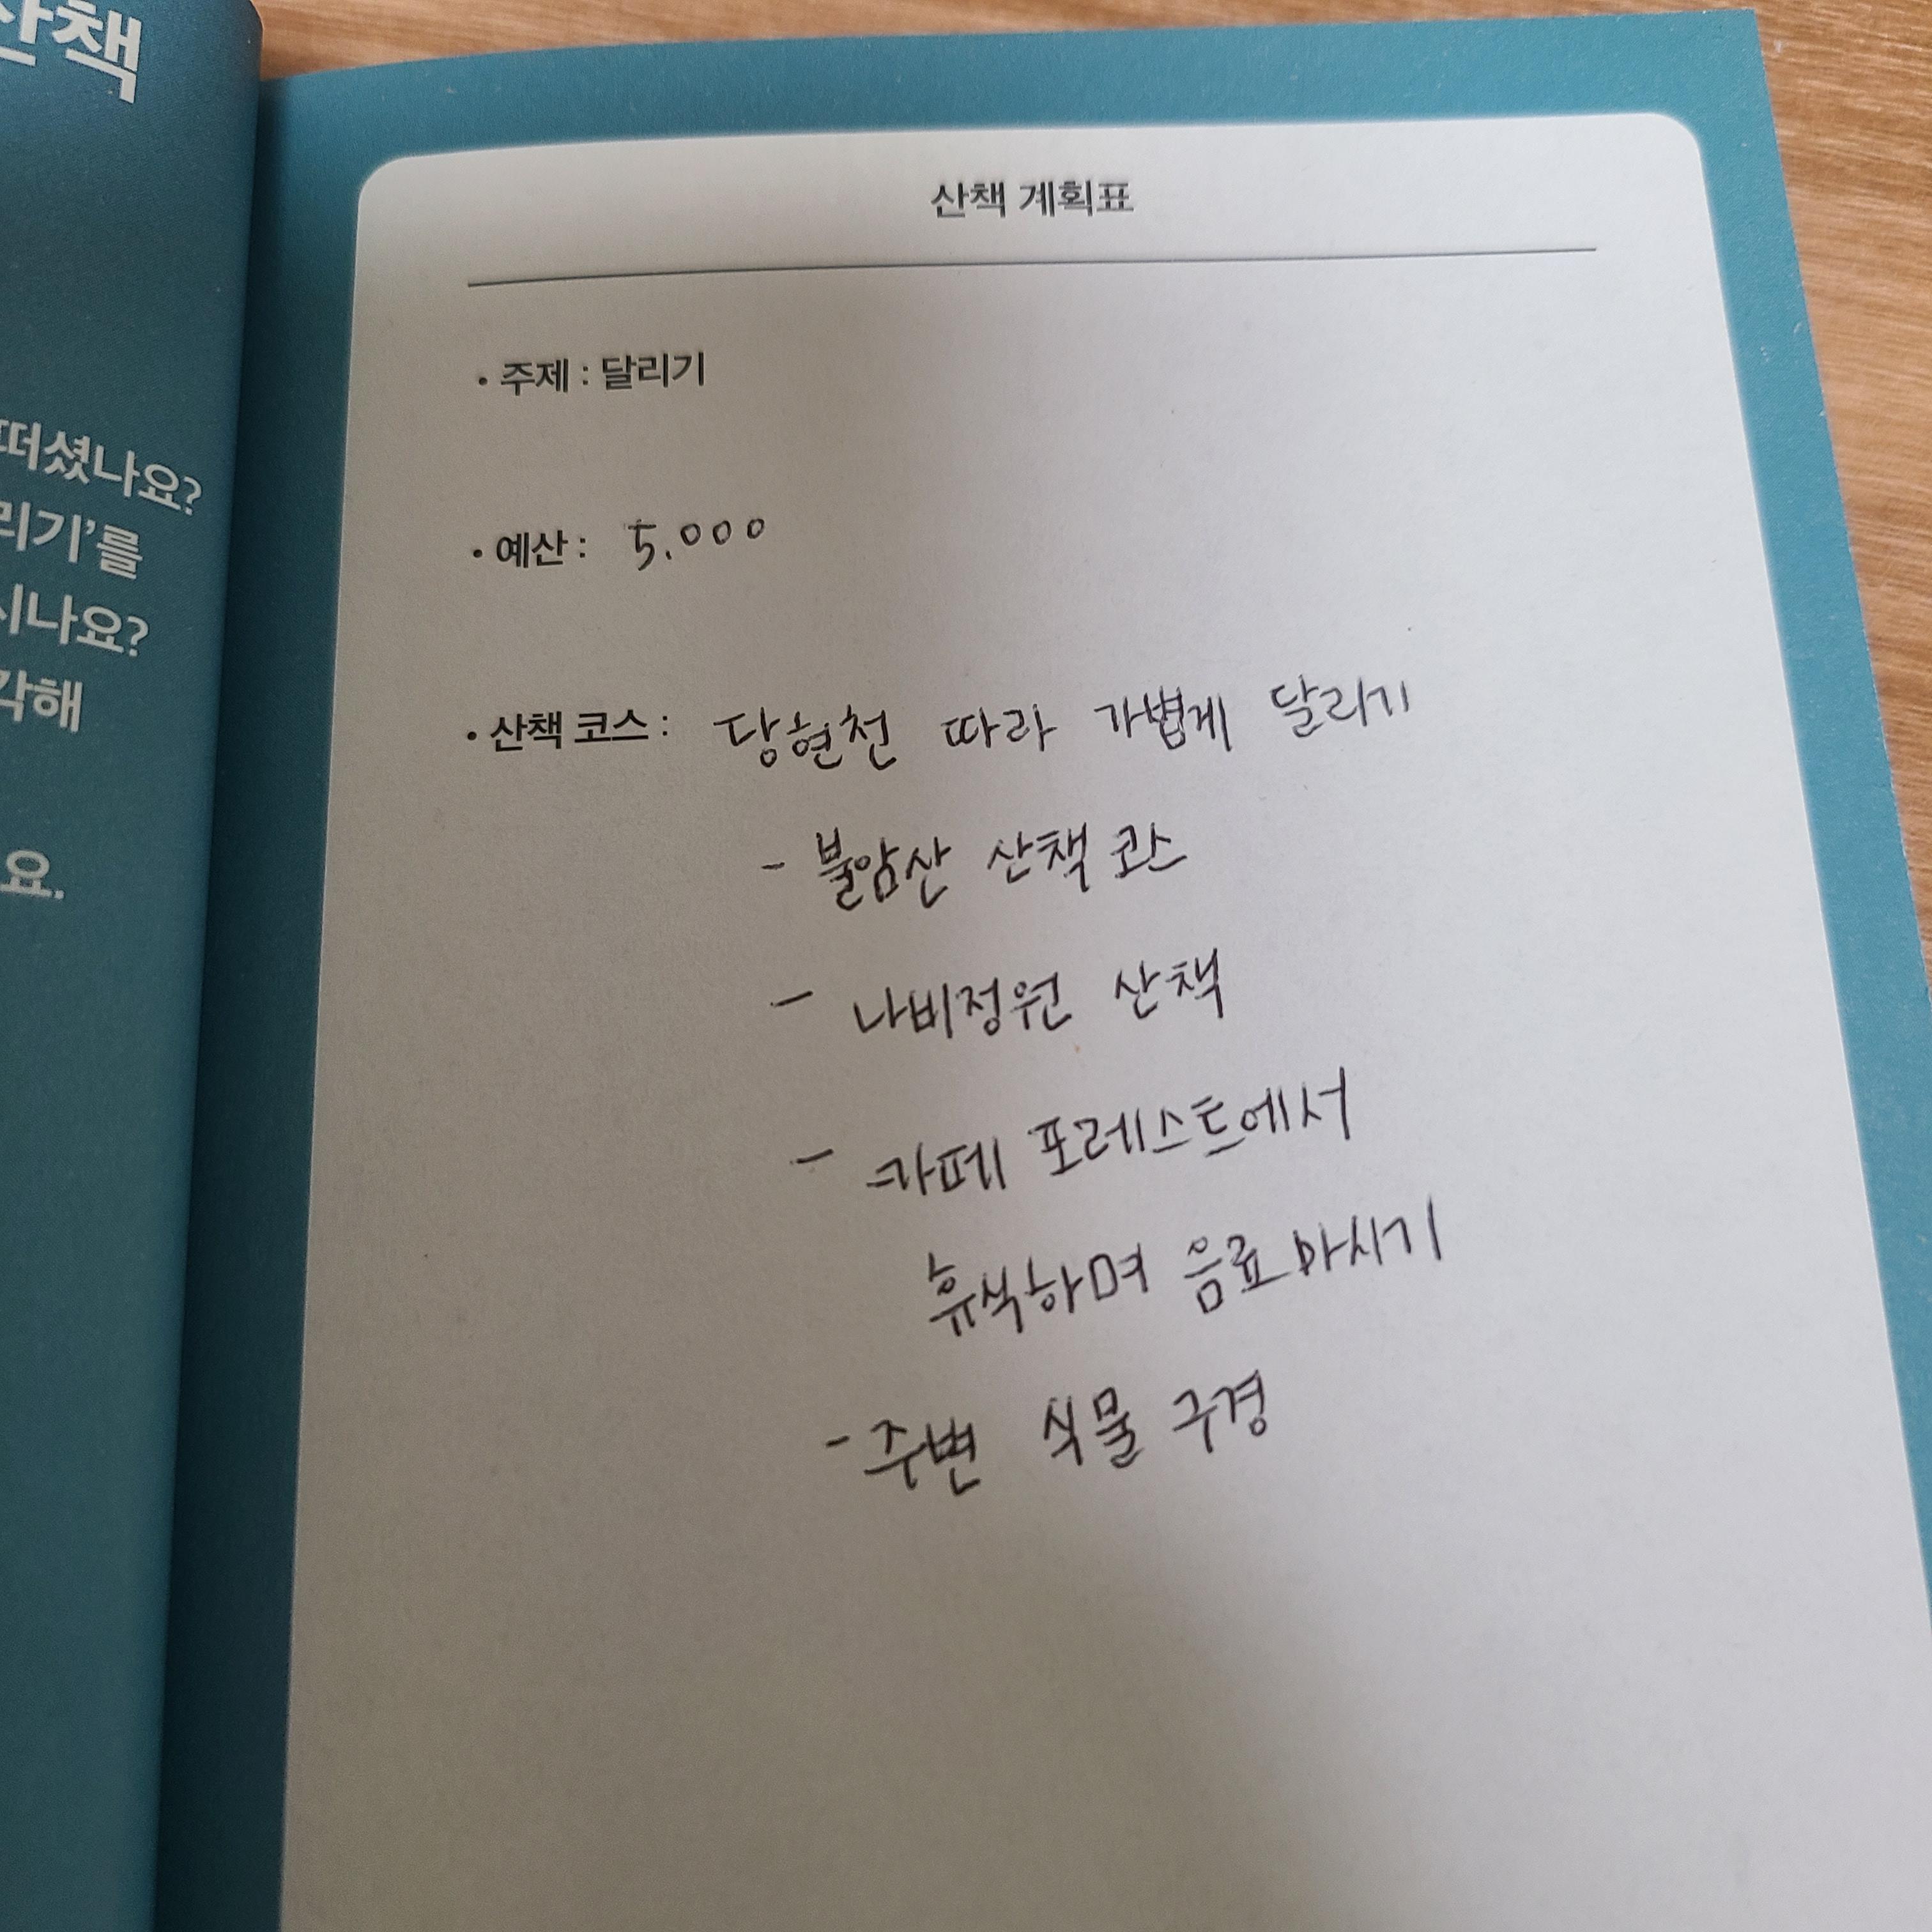 산책
떠셨나요?
리기'를
시나요?
각해
요.
산책 계획표
• 주제 : 달리기
• 예산 : 5.000
• 산책 코스 : 당현천 따라 가볍게 달리기
- 불암산 산책 코스
- 나비정원 산책
- 카페 포레스트에서
휴식하며 음료 마시기
- 주변 식물 구경